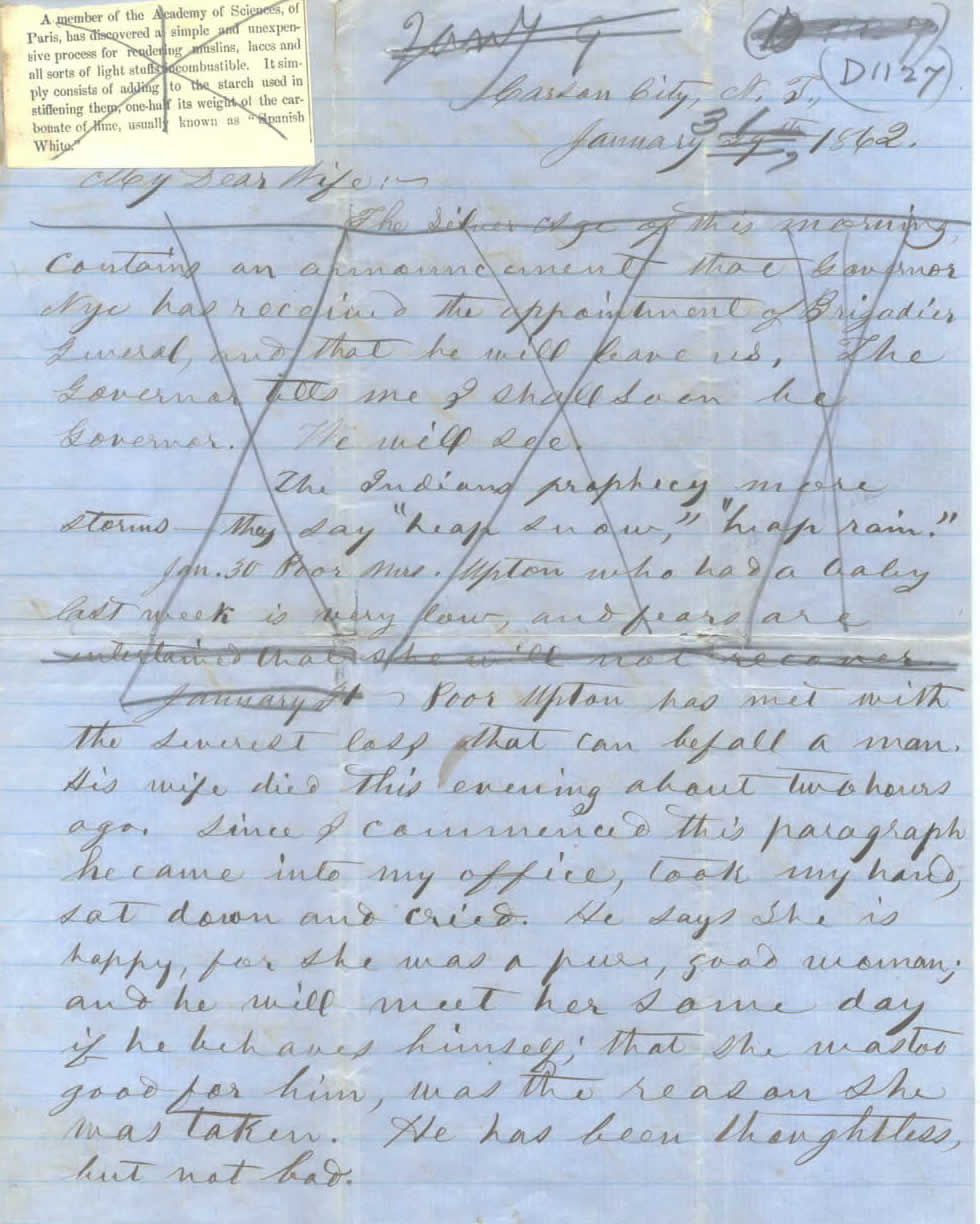 A member of the Academy of Sciences, of
Paris, has discovered a simple and unexpen-
sive process for rendering muslins, laces and
all sorts of light stuffs incombustible. It sim-
ply consists of adding to the starch used in
stiffening them, one-half its weight of the car-
bonate of lime, usually known as "Spanish
White."
Jany 9
D1127
Carson City, N. T.,
January 31 29th, 1862.
My Dear Wife:—
The Silver Age of this morning,
contains an announcement that Governor
Nye has received the appointment of Brigadier
General, and that he will leave us. The
Governor tells me I shall soon be
Governor. We will see.
The Indians prophecy more
storms — they say "heap snow," "heap rain."
Jan. 30 Poor Mrs. Upton who had a baby
last week is very low, and fears are
entertained that she will not recover.
January 31 — Poor Upton has met with
the severest loss that can befall a man.
His wife died this evening about two hours
ago. Since I commenced this paragraph
he came into my office, took my hand,
sat down and cried. He says She is
happy, for she was a pure, good woman;
and he will meet her some day
if he behaves himself; that she was too
good for him, was the reason she
was taken. He has been thoughtless,
but not bad.